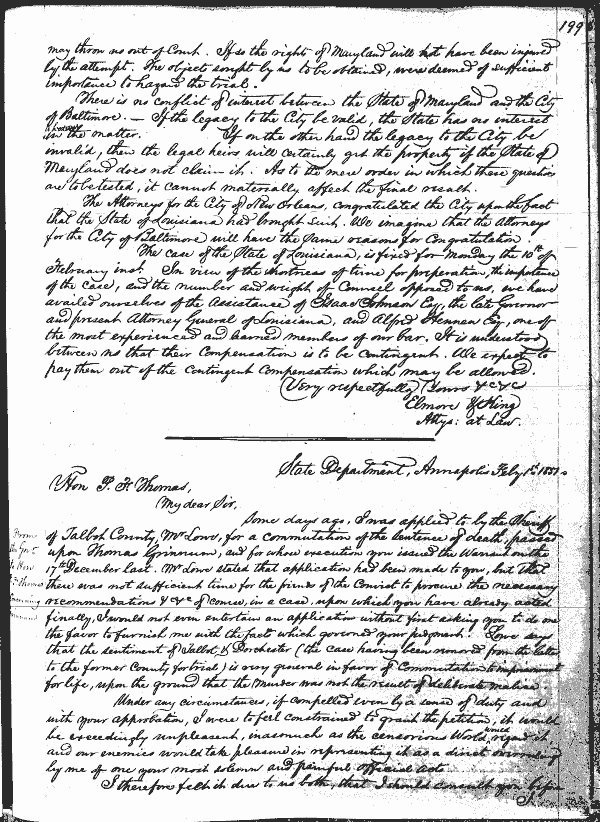 199
may throw us out of Court. If so the rights of Maryland will not have been injured
by the attempt. The objects sought by us to be obtained, were deemed of sufficient
importance to hazard the trial.
There is no conflict of interest between the State of Maryland and the City
of Baltimore. — If the legacy to the City be valid, the State has no interest
in the matter. If on the other hand the legacy to the City be
invalid, then the legal heirs will certainly get the property if the State of
Maryland does not claim it. As to the mere order in which these questions
are to be tested, it cannot materially affect the final result.
The Attorneys for the City of New Orleans, congratulated the City upon the fact
that the State of Louisiana had brought Suit. We imagine that the Attorneys
for the City of Baltimore will have the same reasons for Congratulation.
The case of the State of Louisiana, is fixed for Monday the 10th of
February inst. In view of the shortness of time for preparation, the importance
of the case, and the number and weight of Counsel opposed to us, we have
availed ourselves of the Assistance of Isaac Johnson Esq, the late Governor
and present Attorney General of Louisiana, and Alfred Hennan Esq, one of
the most experienced and learned members of our bar. It is understood
between us that their Compensation is to be Contingent. We expect to
pay them out of the Contingent Compensation which may be allowed.
Very respectfully Yours &c &c
Elmore & King
Attys: at Law.
State Department, Annapolis Feby 1st 1851.
Hon P. F. Thomas,
My dear Sir,
Some days ago, I was applied to by the Sheriff
of Talbot County, Mr Lowe, for a commutation of the Sentence of death, passed
upon Thomas Grinnum, and for whose execution you issued the Warrant on the
17th December last. Mr Lowe stated that application had been made to you, but that
there was not sufficient time for the friends of the Convict to procure the necessary
recommendations &c &c of course, in a case, upon which you have already acted
finally, I would not even entertain an application without first asking you to do me
the favor to furnish me with the facts which governed your judgment. Lowe says
that the sentiment of Talbot & Dorchester (the case having been removed from the latter
to the former County for trial) is very general in favor of Commutation to imprisonment
for life, upon the ground that the Murder was not the result of deliberate malice.
Under any circumstances, if compelled even by a sense of duty and
with your approbation, I were to feel constrained to grant the petition, it would
be exceedingly unpleasant, inasmuch as the censorious World, would regard it,
and our enemies would take pleasure in representing it as a direct overruling
by me of one your most solemn and painful official acts.
I therefore felt it due to us both, that I should consult you before
I